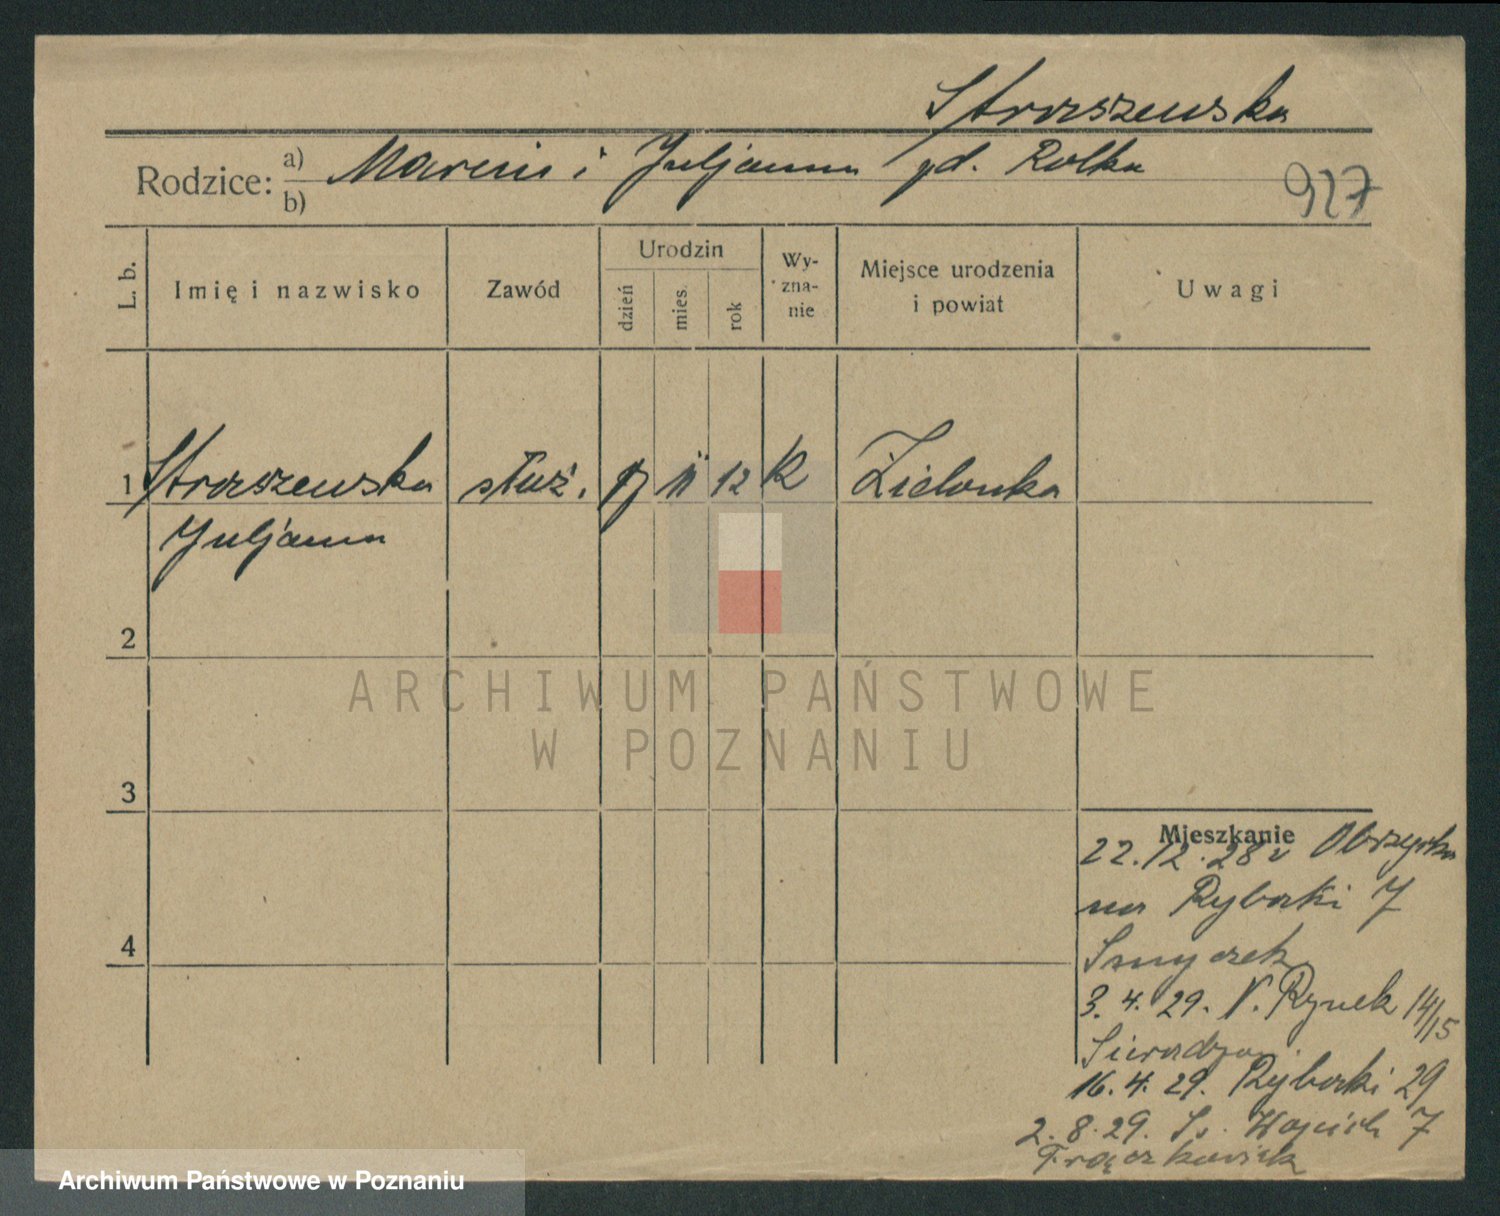 Straszewska
Rodzice: a) Marcin i Juljanna gd. Rolka
b)
927
L. b.
Imię i nazwisko
Zawód
Urodzin
dzień
mies.
rok
Wy-
zna-
nie
Miejsce urodzenia
i powiat
Uwagi
1 Straszewska służ. 17 11 12 K Zielonka
Juljanna
2
3
4
Mieszkanie
22.12.28 z Obrzycka
na Rybaki 7
Smyczek
3. 4. 29. N. Rynek 14/15
16. 4. 29. Rybaki 29
2. 8. 29. Św. Wojciech 7
Frąckowiak
ARCHIWUM PAŃSTWOWE
W POZNANIU
Archiwum Państwowe w Poznaniu